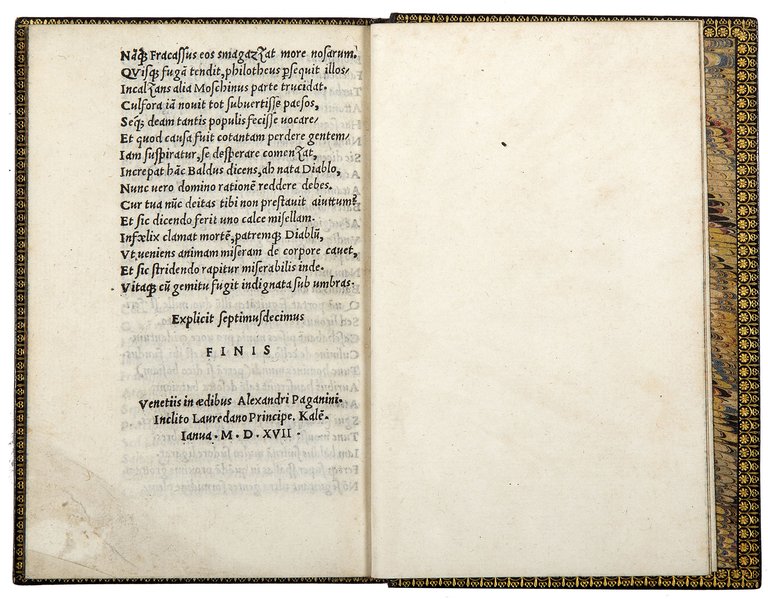 Nāq; Fracassus eos smagazzat more nosarum.
QVisq; fugā tendit, philotheus psequit illos/
Incalzans alia Moschinus parte trucidat.
Culfora iā nouit tot subuertisse paesos,
Seq; deam tantis populis fecisse uocare/
Et quod causa fuit cotantam perdere gentem/
Iam suspiratur, se desperare comenzat,
Increpat hāc Baldus dicens, ah nata Diablo,
Nunc uero domino rationē reddere debes.
Cur tua nūc deitas tibi non prestauit aiuttum?
Et sic dicendo ferit uno calce misellam.
Infœlix clamat mortē, patremq; Diablū,
Vt, ueniens animam miseram de corpore cauet,
Et sic stridendo rapitur miserabilis inde.
Vitaq; cū gemitu fugit indignata sub umbras.
Explicit septimusdecimus
FINIS
Venetiis in ædibus Alexandri Paganini.
Inclito Lauredano Principe. Kalē.
Ianua. M. D. XVII.